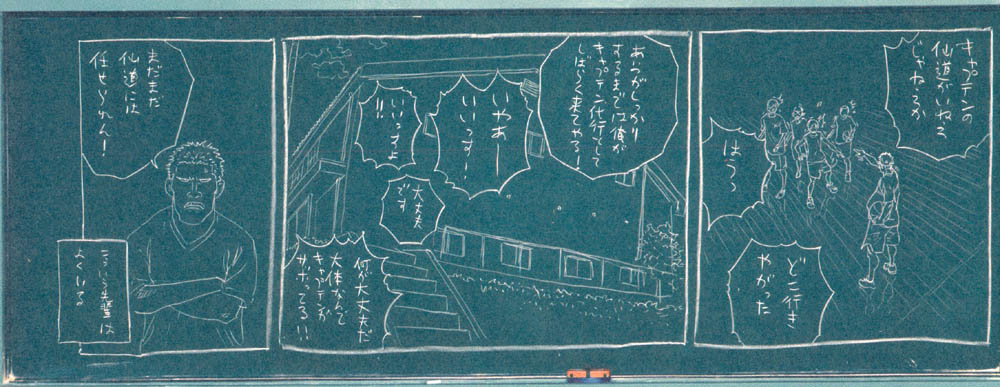 キャプテンの
仙道がいねえ
じゃねえか
はうっ
どこ行き
やがった
あいつがしっかり
するまでは俺が
キャプテン代行として
しばらく来てやる!
いやあー
いいっす!
いいっすよ
!!
大丈夫
です
何が大丈夫だ
大体なんで
キャプテンが
サボってる!!
まだまだ
仙道には
任せられん!
こういう先輩は
よくいる。